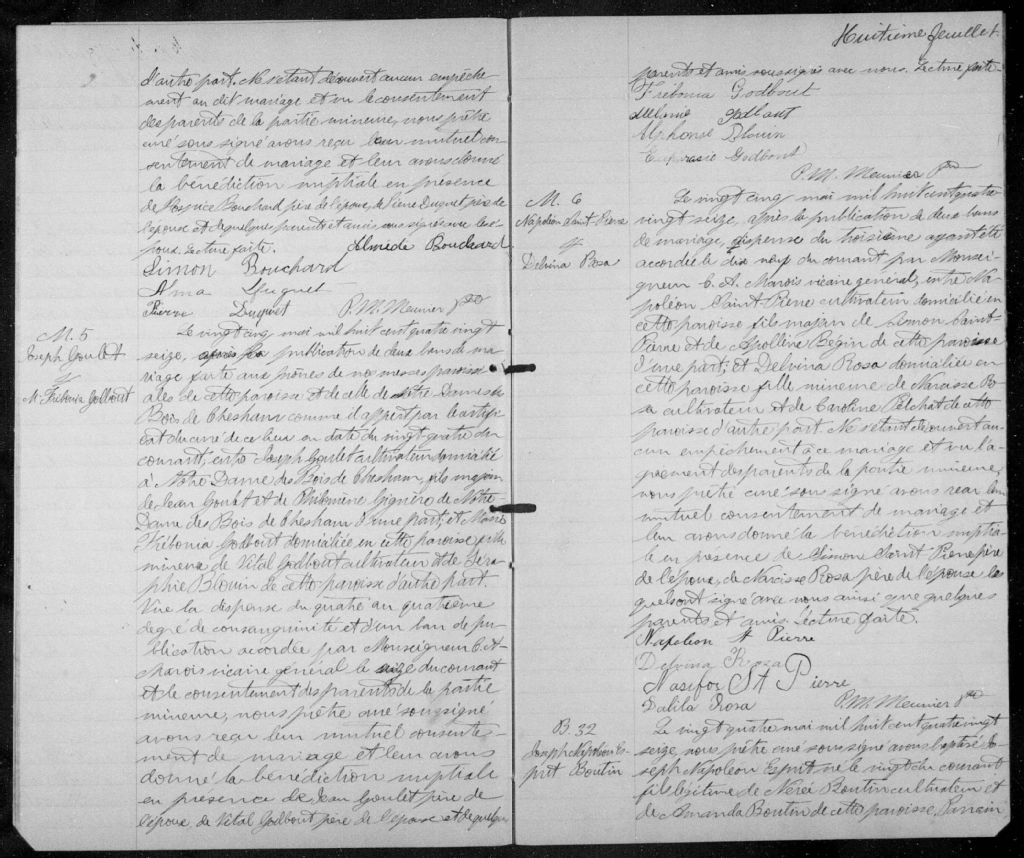 d'autre part. Ne s'étant découvert aucun empêche
ment au dit mariage et vu le consentement
des parents de la partie mineure, nous prêtre
curé sous signé avons reçu leur mutuel con
sentement de mariage et leur avons donné
la bénédiction nuptiale en présence
de Bouchard père de l'époux, de Pierre Duquet père de
l'épouse et de quelques parents et amis, sous signés avec les é
poux. Lecture faite. Bouchard
Simon Bouchard
Alma Duquet
Pierre Duquet P.M. Meunier Ptre
M. 5
Joseph Goulet
&
M. Frébonia Godbout
Le vingt cinq mai mil huit cent quatre vingt
seize, après la publication de deux bans de ma
riage faite aux prônes de nos messes paroissi
ales de cette paroisse et de celle de Notre Dame des
Bois de Chesham comme il appert par le certifi
cat du curé de ce lieu en date du vingt quatre du
courant, entre Joseph Goulet cultivateur domicilié
à Notre Dame des Bois de Chesham, fils majeur
de Jean Goulet et de Philomène de Notre
Dame des Bois de Chesham d'une part; et Marie
Frébonia Godbout domiciliée en cette paroisse fille
mineure de Vital Godbout cultivateur et de Séra
phie Blouin de cette paroisse d'autre part.
Vue la dispense du quatre au quatrième
degré de consanguinité et d'un ban de pu
blication accordée par Monseigneur C. A.
Marois vicaire général le seize du courant
et le consentement des parents de la partie
mineure, nous prêtre curé soussigné
avons reçu leur mutuel consente
ment de mariage et leur avons
donné la bénédiction nuptiale
en présence de Jean Goulet père de
l'époux, de Vital Godbout père de l'épouse et de quelques
Huitième feuillet.
parents et amis soussignés avec nous. Lecture faite.
Frébonia Godbout
Alphonse Blouin
Godbout
P.M. Meunier Ptre
M. 6
Napoléon Saint-Pierre
&
Delvina Rosa
Le vingt cinq mai mil huit cent quatre
vingt seize, après la publication de deux bans
de mariage, dispense du troisième ayant été
accordée le dix neuf du courant par Monsei
gneur C. A. Marois vicaire général, entre Na
poléon Saint-Pierre cultivateur domicilié en
cette paroisse fils majeur de Simon Saint-
Pierre et de Apolline Bégin de cette paroisse
d'une part; et Delvina Rosa domiciliée en
cette paroisse fille mineure de Narcisse Ro
sa cultivateur et de Caroline Pelchat de cette
paroisse d'autre part. Ne s'étant découvert au
cun empêchement à ce mariage et vu l'a
grément des parents de la partie mineure,
nous prêtre curé sous signé avons reçu leur
mutuel consentement de mariage et
leur avons donné la bénédiction nuptia
le en présence de Simon Saint Pierre père
de l'époux, de Narcisse Rosa père de l'épouse les
quels ont signé avec nous ainsi que quelques
parents et amis. Lecture faite.
Napoleon St Pierre
Delvina Rosa
St Pierre
Dalila Rosa P.M. Meunier Ptre
B. 32
Joseph Napoléon Es-
prit Boutin
Le vingt quatre mai mil huit cent quatre vingt
seize, nous prêtre curé sous signé avons baptisé Jo
seph Napoléon Esprit né le vingt du courant
fils légitime de Nérée Boutin cultivateur et
de Amanda Boutin de cette paroisse. Parrain